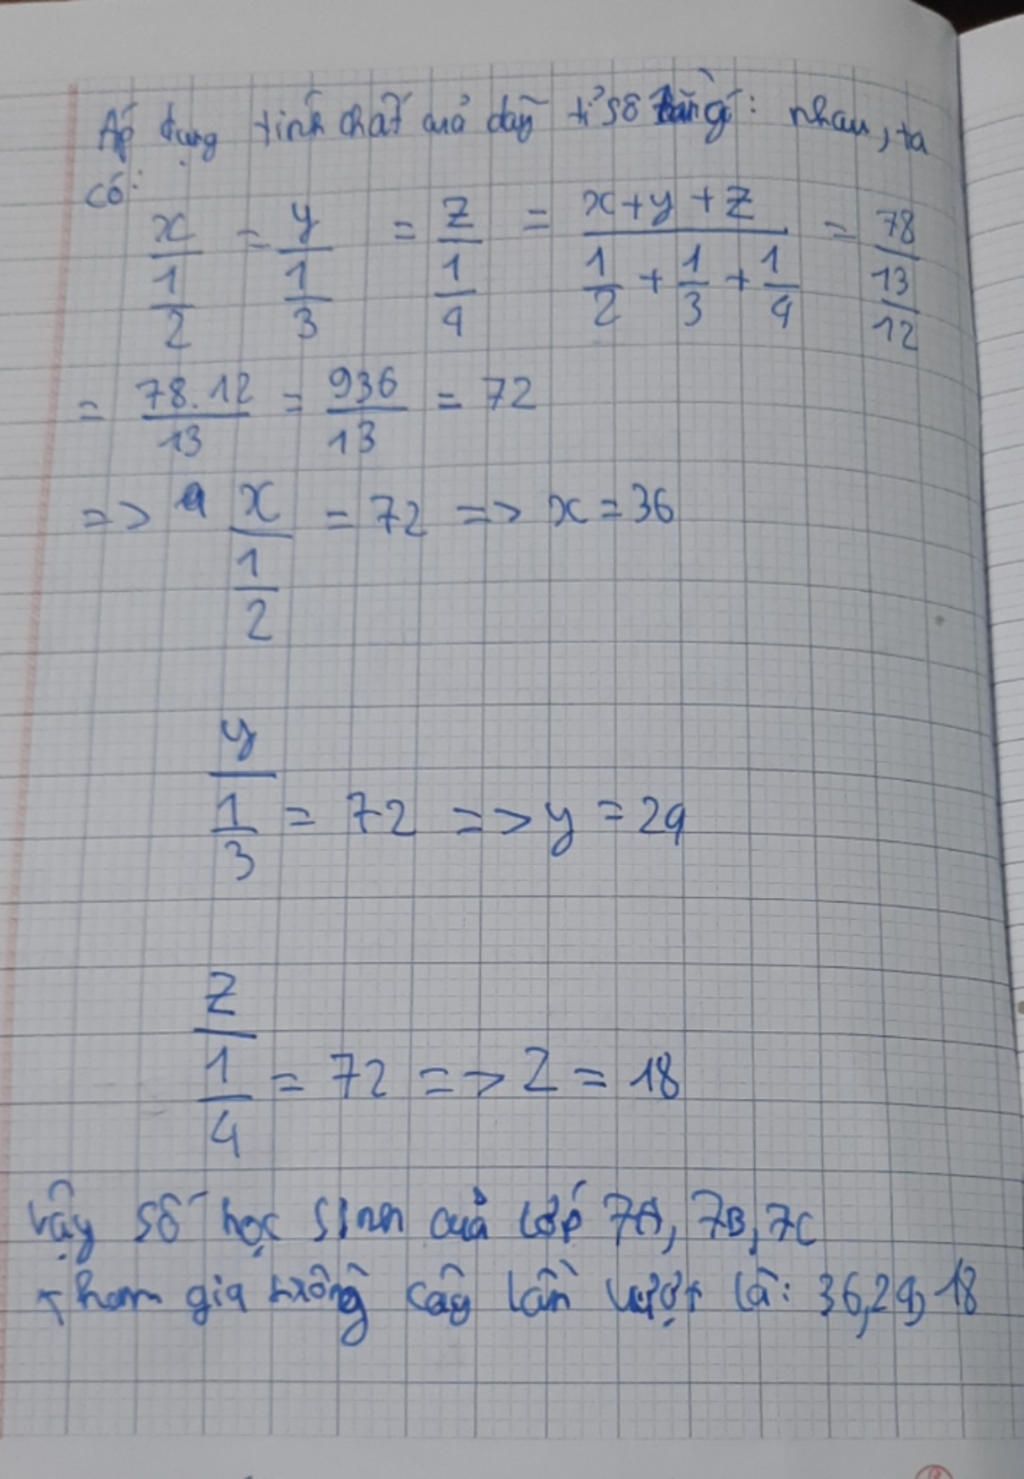 Áp dụng tính chất của dãy tỉ số bằng: nhau, ta
có:
x/(1/2) = y/(1/3) = z/(1/4) = (x+y+z)/(1/2+1/3+1/4) = 78/(13/12)
= 78.12/13 = 936/13 = 72
=> x/(1/2) = 72 => x = 36
y/(1/3) = 72 => y = 24
z/(1/4) = 72 => z = 18
Vậy số học sinh của lớp 7A, 7B, 7C
tham gia trồng cây lần lượt là: 36, 24, 18